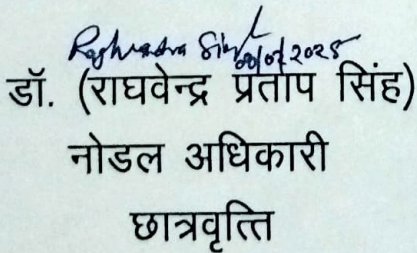 Raghvendra Singh
डॉ. (राघवेन्द्र प्रताप सिंह)
नोडल अधिकारी
छात्रवृत्ति